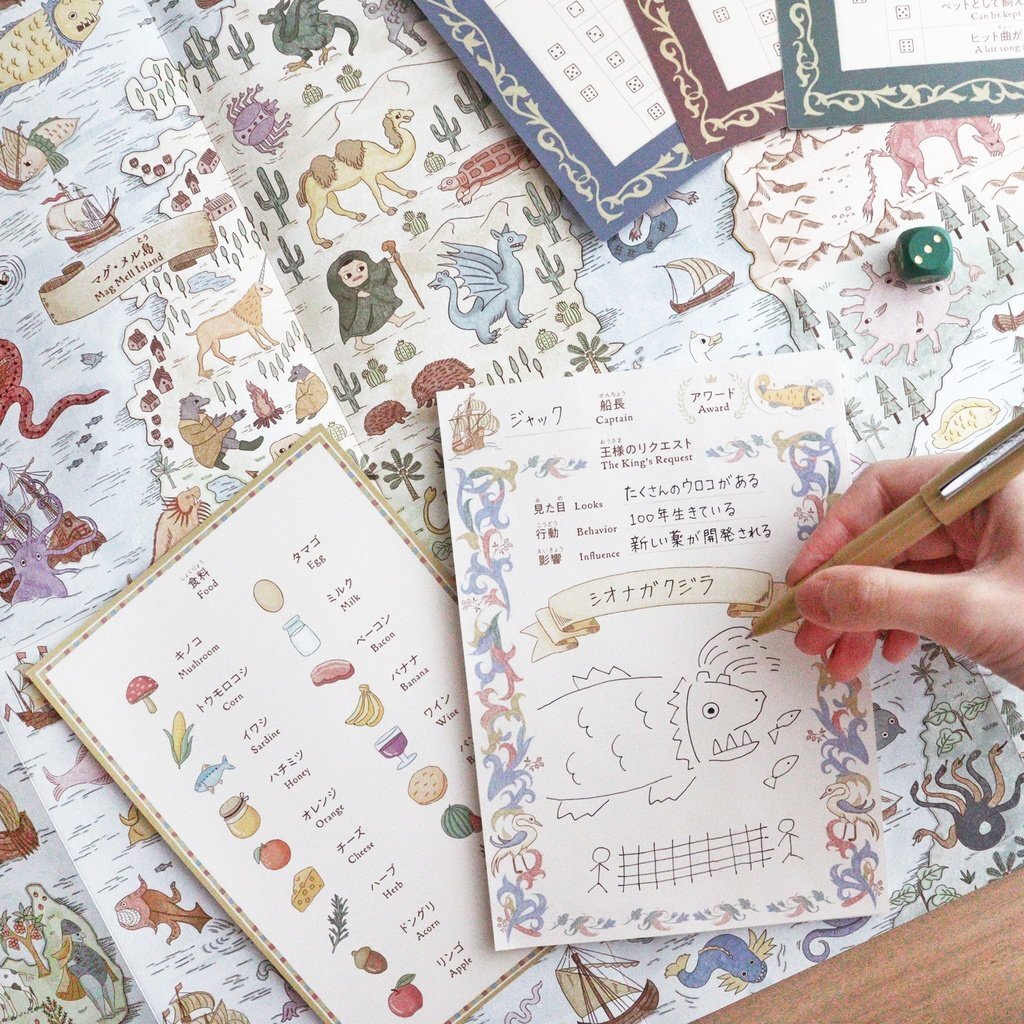 ペットとして飼え
Can be kept
ヒット曲が
A hit song
とう
マグ・メル島
Mag Mell Island
ジャック
せんちょう
船長
Captain
アワード
Award
おうさま
王様のリクエスト
The King's Request
み め
見た目 Looks たくさんのウロコがある
こうどう
行動 Behavior 100年生きている
えいきょう
影響 Influence 新しい薬が開発される
シオナガクジラ
しょくりょう
食料
Food
タマゴ
Egg
ミルク
Milk
ベーコン
Bacon
バナナ
Banana
ワイン
Wine
キノコ
Mushroom
トウモロコシ
Corn
イワシ
Sardine
ハチミツ
Honey
オレンジ
Orange
チーズ
Cheese
ハーブ
Herb
ドングリ
Acorn
リンゴ
Apple